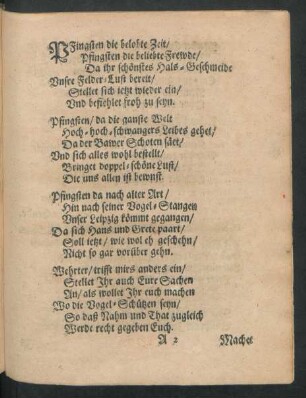 PFingsten die belobte Zeit/
Pfingsten die beliebte Frewde/
Da ihr schönstes Hals-Geschmeide
Vnsre Felder-Lust bereit/
Stellet sich ietzt wieder ein/
Vnd befiehlet froh zu seyn.
Pfingsten/ da die gantze Welt
Hoch-hoch-schwangers Leibes gehet/
Da der Bawer Schoten säet/
Vnd sich alles wohl bestellt/
Bringet doppel-schöne Lust/
Die uns allen ist bewust.
Pfingsten da nach alter Art/
Hin nach seiner Vogel-Stangen
Vnser Leipzig kömmt gegangen/
Da sich Hans und Grete paart/
Soll ietzt/ wie wol eh geschehn/
Nicht so gar vorüber gehn.
Wehrter/ trifft mirs anders ein/
Stellet Ihr auch Eure Sachen
An/ als wollet Ihr euch machen
Wo die Vogel-Schützen seyn/
So daß Nahm und That zugleich
Werde recht gegeben Euch.
A 2 Machet